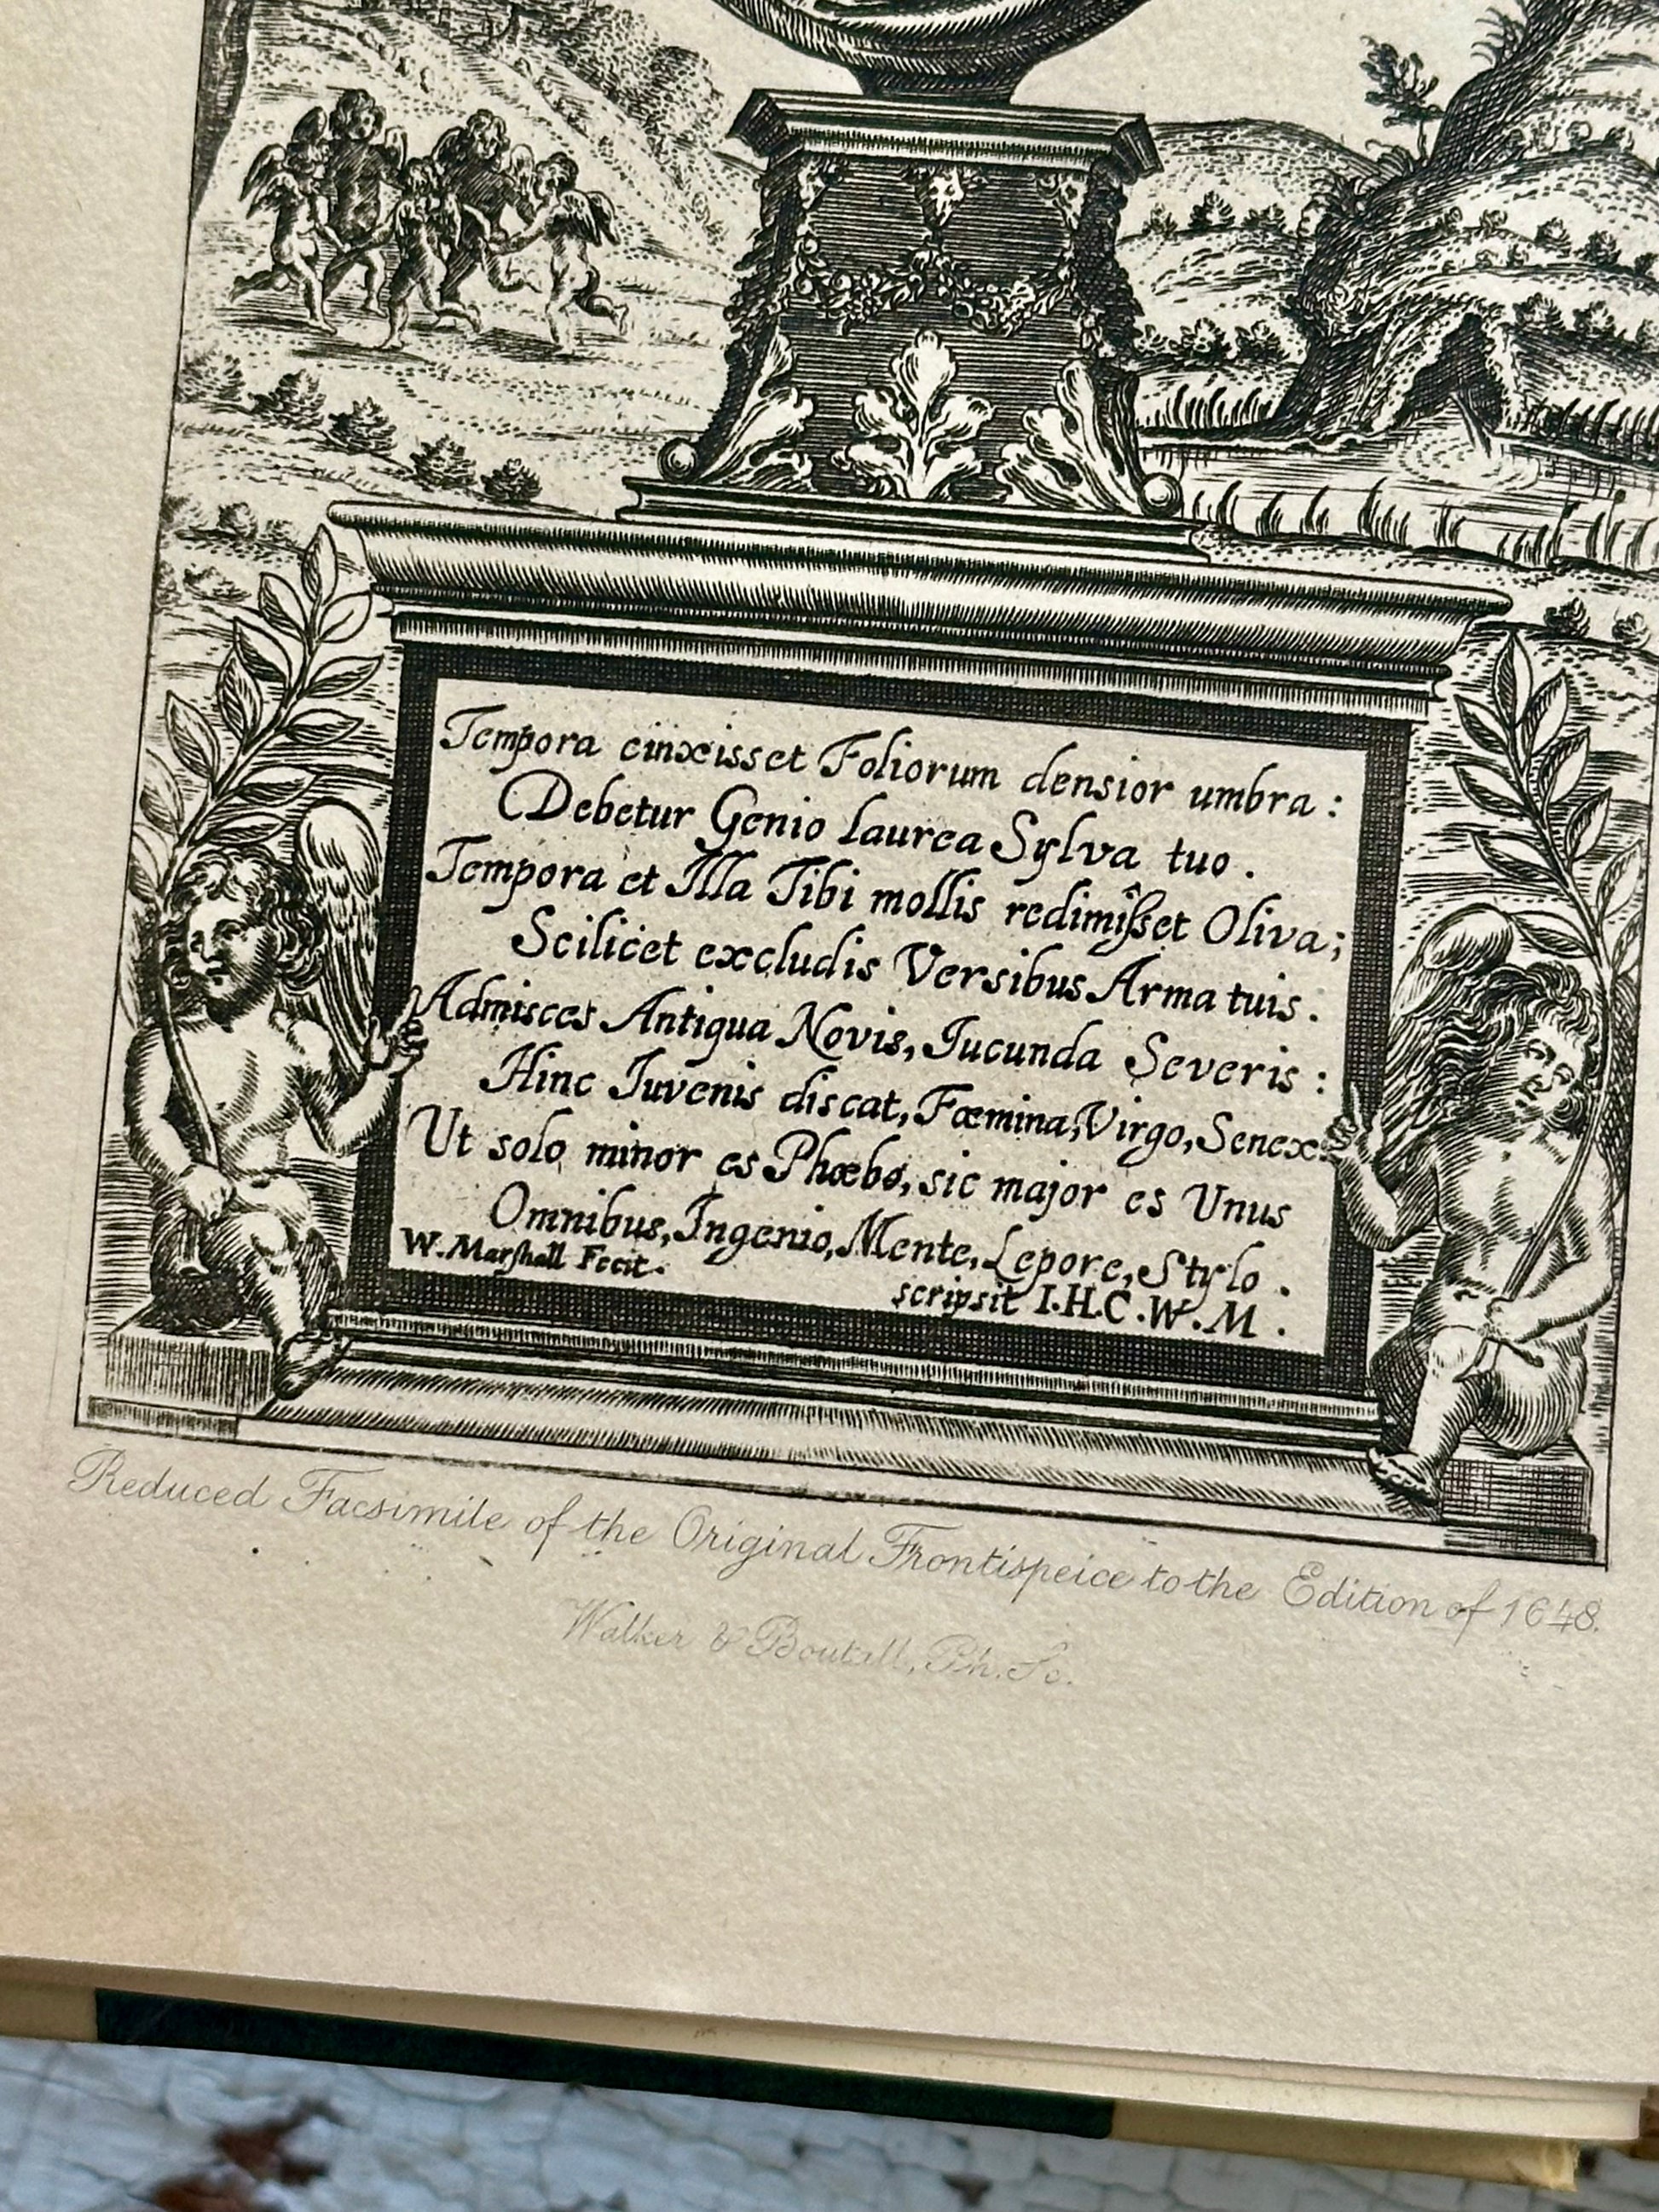 Tempora cinxisset Foliorum densior umbra:
Debetur Genio laurea Sylva tuo.
Tempora et Illa Tibi mollis redimîsset Oliva;
Scilicet excludis Versibus Arma tuis.
Admisces Antiqua Novis, Iucunda Severis:
Hinc Iuvenis discat, Fœmina, Virgo, Senex.
Ut solo minor es Phœbo, sic major es Unus
Omnibus, Ingenio, Mente, Lepore, Stylo.
W. Marshall Fecit.
scripsit I.H.C.W.M.
Reduced Facsimile of the Original Frontispeice to the Edition of 1648.
Walker & Boutall, Ph. Sc.